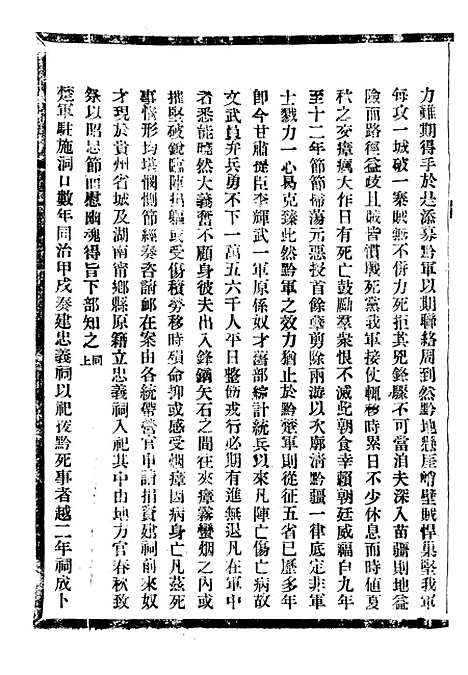 力難期得手於是添募黔軍以期聯絡周到然黔地懸崖峭壁賊悍巢堅我軍
每攻一城破一寨賊無不併力死拒其兇鋒驟不可當洎夫深入苗疆則地益
險而路徑益歧且賊皆慣戰死黨我軍接仗輒移時累日不少休息而時值夏
秋之交瘴癘大作日有死亡鼓勵羣衆恨不滅此朝食幸賴朝廷威福自九年
至十二年節節掃蕩元惡授首餘孽剪除兩游以次廓清黔疆一律底定非軍
士戮力一心曷克臻此然黔軍之效力猶止於黔楚軍則從征五省已歷多年
卽今甘肅提臣李輝武一軍原係奴才舊部綜計統兵以來凡陣亡傷亡病故
文武員弁兵勇不下一萬五六千人平日整飭戎行必期有進無退凡在軍中
者悉能曉然大義奮不顧身彼夫出入鋒鏑矢石之間往來瘴霧蠻烟之內或
摧堅破銳臨陣捐軀或受傷積勞移時殞命抑或感受烟瘴因病身亡凡茲死
事情形均堪憫惻節經奏咨請卹在案由各統帶營官申請捐資建祠前來奴
才現於貴州省城及湖南甯鄉縣原籍立忠義祠入祀其中由地方官春秋致
祭以昭忠節而慰幽魂得旨下部知之同上
楚軍駐施洞口數年同治甲戌奏建忠義祠以祀援黔死事者越二年祠成卜